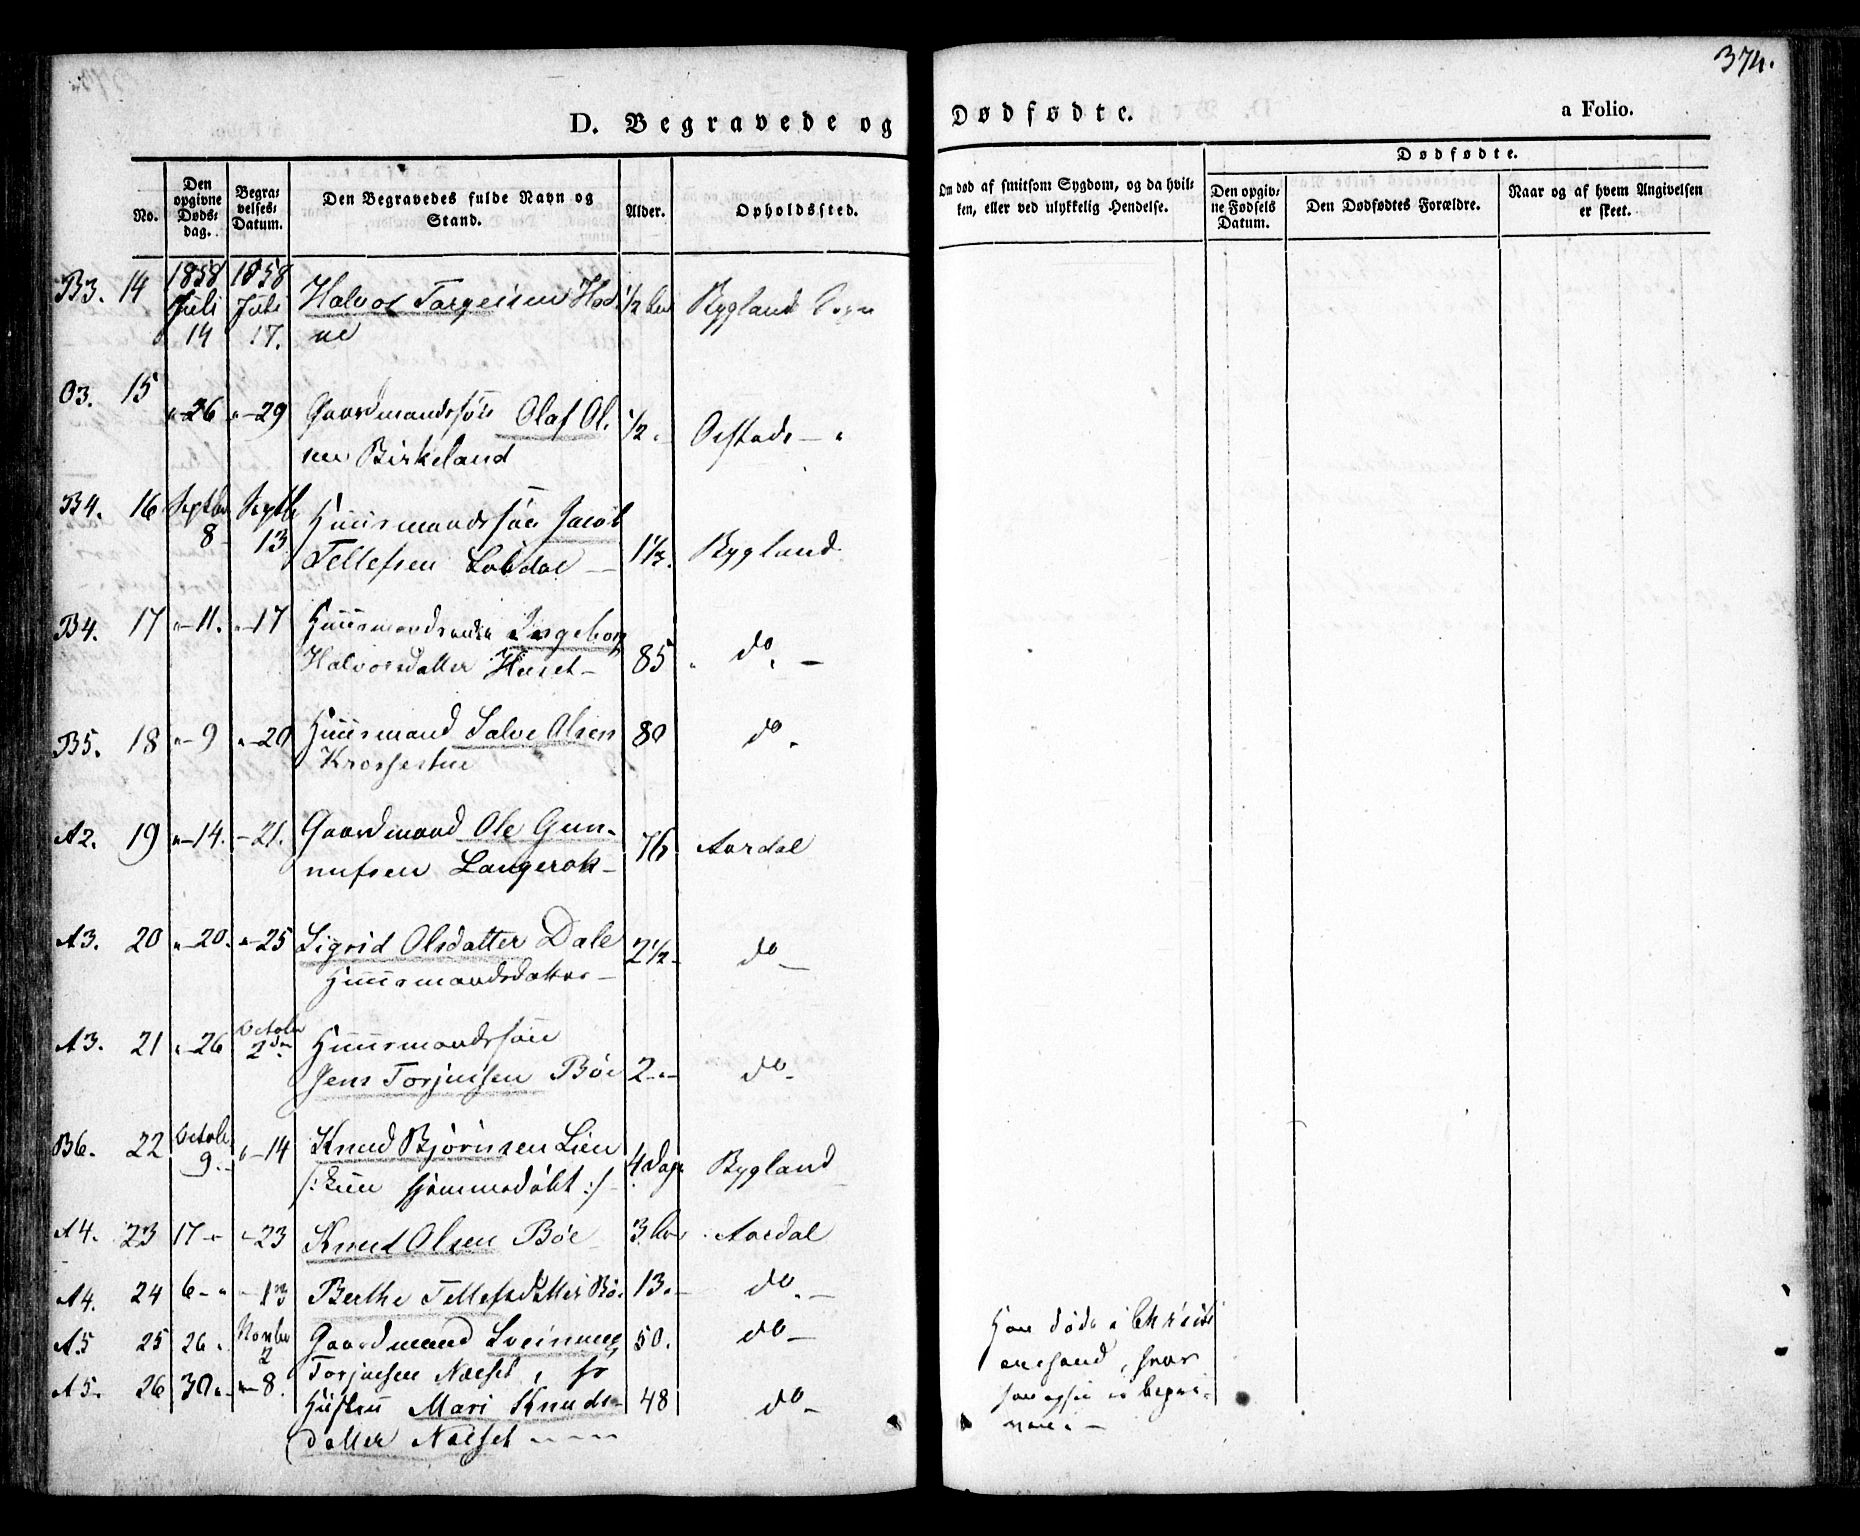 374.
D. Begravede og Dødfødte.
a Folio.
No.
Den opgivne Døds-dag.
Begra-velses-Datum.
Den Begravedes fulde Navn og Stand.
Alder.
Opholdssted.
Om død af smitsom Sygdom, og da hvil-
ken, eller ved ulykkelig Hendelse.
Dødfødte.
Den opgiv-ne Fødsels Datum.
Den Dødfødtes Forældre.
Naar og af hvem Angivelsen er skeet.
B3. 14 1858 Juli 14 1858 Juli 17. Halvor Targeisen 1/2 Bygland Sogn
O3. 15 "-26 "-29 Gaardmandssøn Olaf Ol.
sen Birkeland 1/2 " Oestads - "
B4. 16 Septbr 8 Septb 13 Huusmandssøn Jacob
Tellefsen 1 1/3. Bygland
B4. 17 "-11. "-17 Ingeborg
Halvorsdatter Huset - 85 " do. -
B5. 18 "-9 "-20 Huusmand Salve Olsen 80 do.
Krossestue
A2. 19 "-14. -21. Gaardmand Ole Gun-
nufsen Langerak - 76 Aardal
A3. 20 "-20. "-25 Sigrid Olsdatter Dale 2 1/2 - do -
Huusmandsdatter -
A3. 21 "-26 Octobr 2den Huusmandssøn
Jens Torjusen Bøe 2-"- do-
B6. 22 Octob 9. "-14 Knud Bjørnsen Lien 4 Dage Bygland
/: kun hjemmedøbt :/
A4. 23 17-" "-23 Knud Olsen Bøe 3 Aardal
A4. 24 6-" -13 Berthe Tellefsdatter Bøe 13.- do. -
A5 25 26-" Novbr 2 Gaardmand Sveinung 50. do-
Torjusen Naeset,
A5. 26 30"- "-8. Hustru Mari Knuds- 48 do-
datter Naeset
Han døde i Christi
ansand, hvor
han ogsaa er begra-